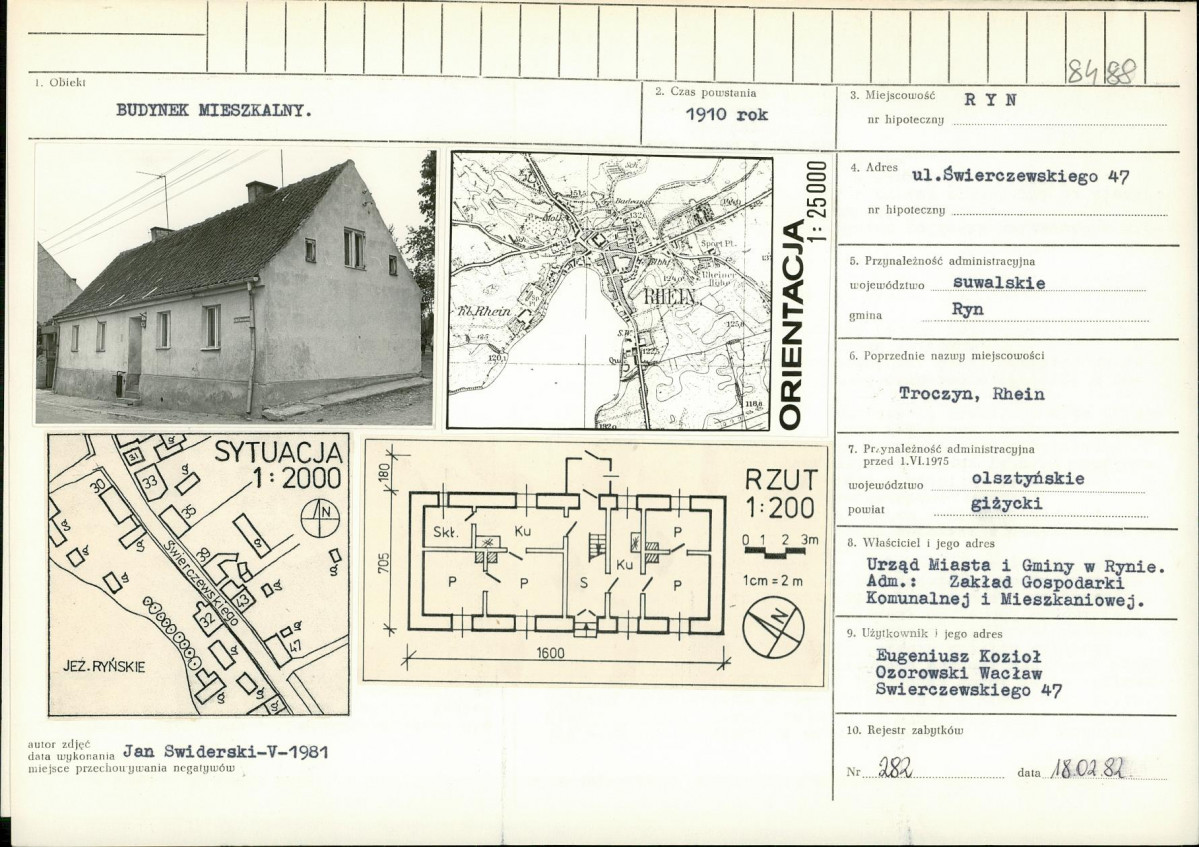 8488
1. Obiekt
BUDYNEK MIESZKALNY.
2. Czas powstania
1910 rok
3. Miejscowość R Y N
nr hipoteczny
4. Adres ul.Świerczewskiego 47
nr hipoteczny
5. Przynależność administracyjna
województwo suwalskie
gmina Ryn
6. Poprzednie nazwy miejscowości
Troczyn, Rhein
7. Przynależność administracyjna
przed 1.VI.1975
województwo olsztyńskie
powiat giżycki
8. Właściciel i jego adres
Urząd Miasta i Gminy w Rynie.
Adm.: Zakład Gospodarki
Komunalnej i Mieszkaniowej.
9. Użytkownik i jego adres
Eugeniusz Kozioł
Ozorowski Wacław
Swierczewskiego 47
10. Rejestr zabytków
Nr 282 data 18.02.82.
ORIENTACJA
1:25000
RHEIN
Kl. Rhein
Sport Pl.
SYTUACJA
1:2000
N
31
33
30
35
39
Świerczewskiego
43
32
47
g
JEZ. RYŃSKIE
RZUT
1:200
0 1 2 3m
1cm = 2 m
N
180
705
1600
Skł.
Ku
P
P
P
S
Ku
P
P
autor zdjęć
data wykonania Jan Swiderski-V-1981
miejsce przechowywania negatywów